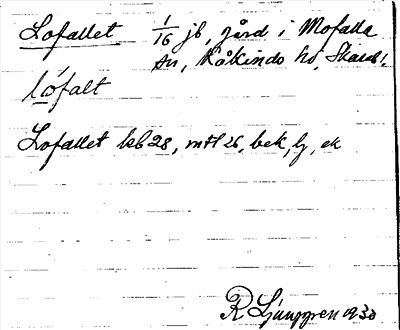 Lofallet 1/16 jb, gård i Mofalla
sn, Kåkinds hd, Skarab.l.
lófalt
Lofallet kb 28, mtl 26, bek, lj, ek
R Ljunggren 1930